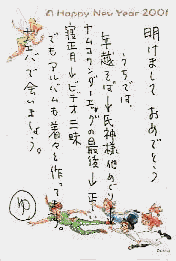 A Happy New Year 2001
明けまして おめでとう
うちでは、
年越そば→氏神様他めぐり
ナムコワンダーエッグの最後→正しい
寝正月→ビデオ三昧
でもアルバムも着々と作って
で会いましょう。
ゆ